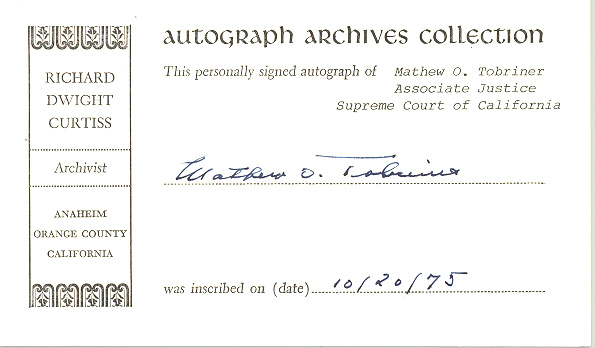 RICHARD
DWIGHT
CURTISS
Archivist
ANAHEIM
ORANGE COUNTY
CALIFORNIA
AUTOGRAPH ARCHIVES COLLECTION
This personally signed autograph of Mathew O. Tobriner
Associate Justice
Supreme Court of California
Mathew O. Tobriner
was inscribed on (date) 10/20/75